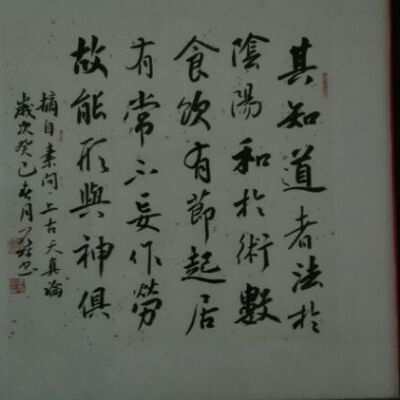 其知道者法於
陰陽和於術數
食飲有節起居
有常不妄作勞
故能形與神俱
摘自素問·上古天真論
歲次癸巳冬月